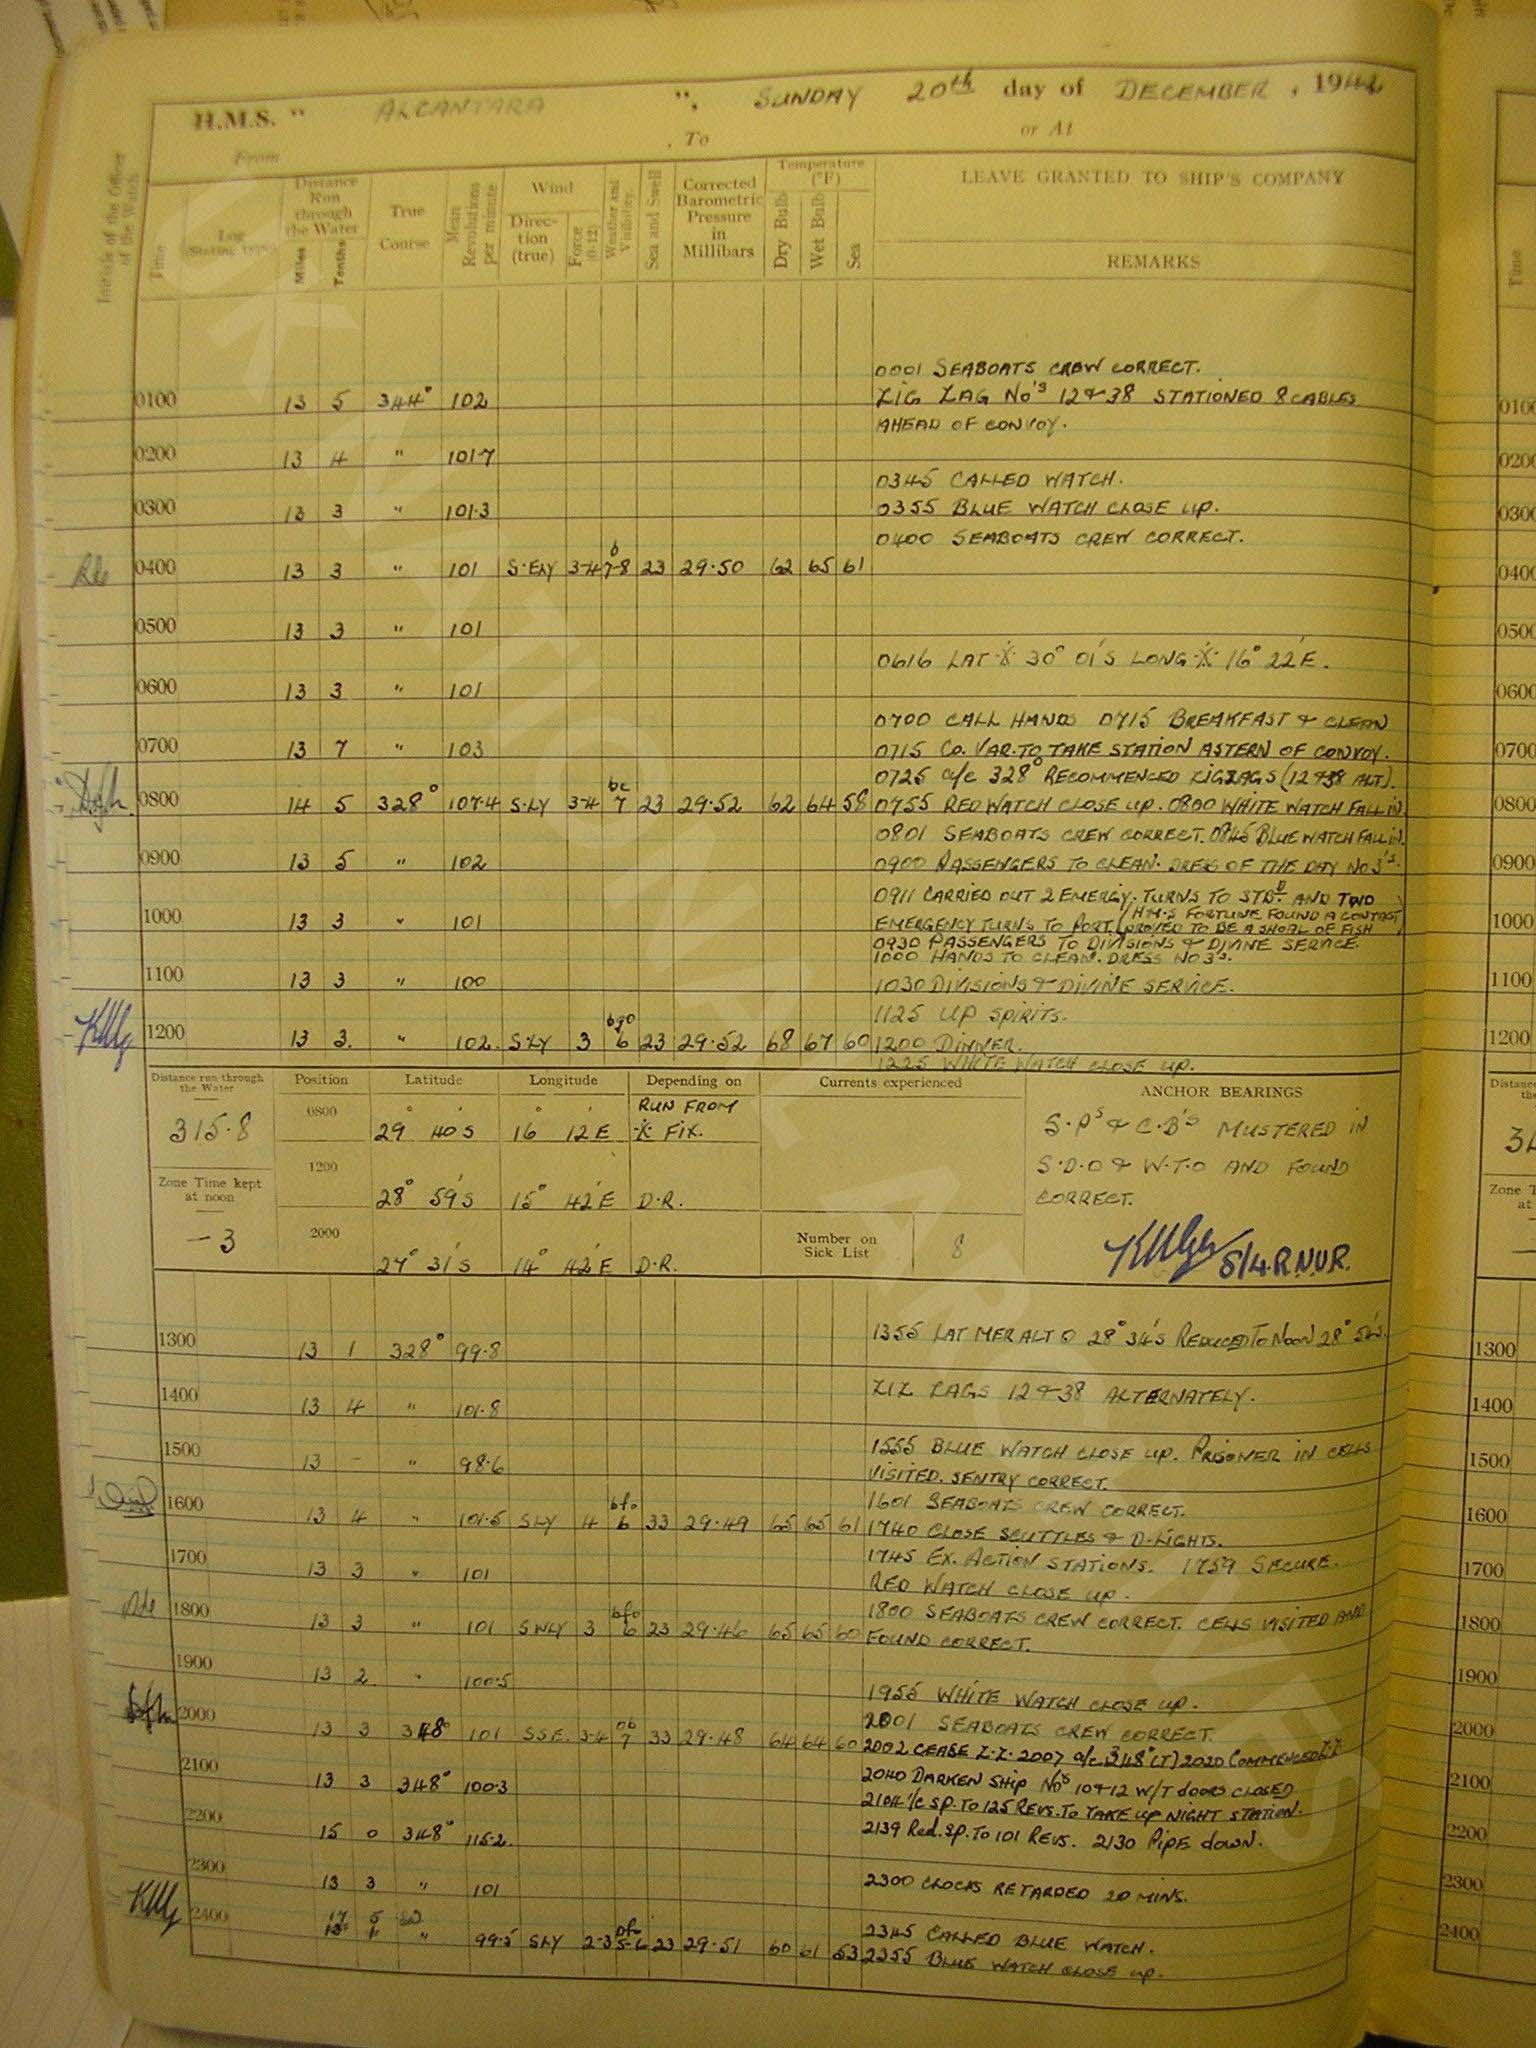 H.M.S. " ALCANTARA ", SUNDAY 20th day of DECEMBER, 1942
From , To or At
Initials of the Officer of the Watch
Time
Log (Stating type)
Distance Run through the Water
Miles Tenths
True Course
Mean Revolutions per minute
Wind
Direction (true) Force (0-12)
Weather and Visibility
Sea and Swell
Corrected Barometric Pressure in Millibars
Temperature (°F)
Dry Bulb Wet Bulb Sea
LEAVE GRANTED TO SHIP'S COMPANY
REMARKS
0001 SEABOATS CREW CORRECT.
0100 13 5 344° 102 ZIG ZAG No's 12 & 38 STATIONED 8 CABLES
AHEAD OF CONVOY.
0200 13 4 " 101·7
0345 CALLED WATCH.
0300 13 3 " 101·3 0355 BLUE WATCH CLOSE UP.
0400 SEABOATS CREW CORRECT.
0400 13 3 " 101 S·ELY 3-4 b 7-8 23 29·50 62 65 61
0500 13 3 " 101
0616 LAT ·X· 30° 01'S LONG ·X· 16° 22'E.
0600 13 3 " 101
0700 CALL HANDS 0715 BREAKFAST & CLEAN
0700 13 7 " 103 0715 CO. VAR. TO TAKE STATION ASTERN OF CONVOY.
0725 a/c 328° RECOMMENCED ZIGZAGS (12 & 38 ALT).
0800 14 5 328° 107·4 S·LY 3-4 bc 7 23 29·52 62 64 58 0755 RED WATCH CLOSE UP. 0800 WHITE WATCH FALL IN.
0801 SEABOATS CREW CORRECT. 0845 BLUE WATCH FALL IN.
0900 13 5 " 102 0900 PASSENGERS TO CLEAN. DRESS OF THE DAY No 3's.
0911 CARRIED OUT 2 EMERGY. TURNS TO STBD AND TWO
1000 13 3 " 101 EMERGENCY TURNS TO PORT. (H.M.S FORTUNE FOUND A CONTACT
PROVED TO BE A SHOAL OF FISH)
0930 PASSENGERS TO DIVISIONS & DIVINE SERVICE.
1000 HANDS TO CLEAN. DRESS No 3's.
1100 13 3 " 100 1030 DIVISIONS & DIVINE SERVICE.
1125 UP SPIRITS.
1200 13 3. " 102. S·LY 3 bgo 6 23 29·52 68 67 60 1200 DINNER.
1225 WHITE WATCH CLOSE UP.
Distance run through the Water
315·8
Zone Time kept at noon
-3
Position Latitude Longitude Depending on
0800 29° 40'S 16° 12'E RUN FROM ·X· FIX.
1200 28° 59'S 15° 42'E D·R.
2000 27° 31'S 14° 42'E D·R.
Currents experienced
Number on Sick List 8
ANCHOR BEARINGS
S·Ps & C·B's MUSTERED IN
S·D·O & W·T·O AND FOUND
CORRECT.
S/Lt. R.N.V.R.
1300 13 1 328° 99·8 1355 LAT MER ALT O 28° 34'S REDUCED TO NOON 28° 54'S.
1400 13 4 " 101·8 ZIZ ZAGS 12 & 38 ALTERNATELY.
1500 13 - " 98·6 1555 BLUE WATCH CLOSE UP. PRISONER IN CELLS
VISITED. SENTRY CORRECT.
1601 SEABOATS CREW CORRECT.
1600 13 4 " 101·5 SLY 4 bfo 6 33 29·49 65 65 61 1740 CLOSE SCUTTLES & D·LIGHTS.
1700 13 3 " 101 1745 EX. ACTION STATIONS. 1759 SECURE.
RED WATCH CLOSE UP.
1800 SEABOATS CREW CORRECT. CELLS VISITED AND
1800 13 3 " 101 SWLY 3 bfo 6 23 29·46 65 65 60 FOUND CORRECT.
1900 13 2 " 100·5
1955 WHITE WATCH CLOSE UP.
2001 SEABOATS CREW CORRECT.
2000 13 3 348° 101 SSE. 3-4 ob 7 33 29·48 64 64 60 2002 CEASE Z.Z. 2007 a/c 348° (T) 2020 COMMENCED Z.Z.
2100 13 3 348° 100·3 2040 DARKEN SHIP Nos 10 & 12 W/T DOORS CLOSED
2104 I/C SP. TO 125 REVS. TO TAKE UP NIGHT STATION.
2200 15 0 348° 115·2 2139 Red. SP. TO 101 REVS. 2130 PIPE DOWN.
2300 13 3 " 101 2300 CLOCKS RETARDED 20 MINS.
2345 CALLED BLUE WATCH.
2400 " 99·5 SLY 2-3 5-6 23 29·51 60 61 53 2355 BLUE WATCH CLOSE UP.
Time
0100
0200
0300
0400
0500
0600
0700
0800
0900
1000
1100
1200
1300
1400
1500
1600
1700
1800
1900
2000
2100
2200
2300
2400